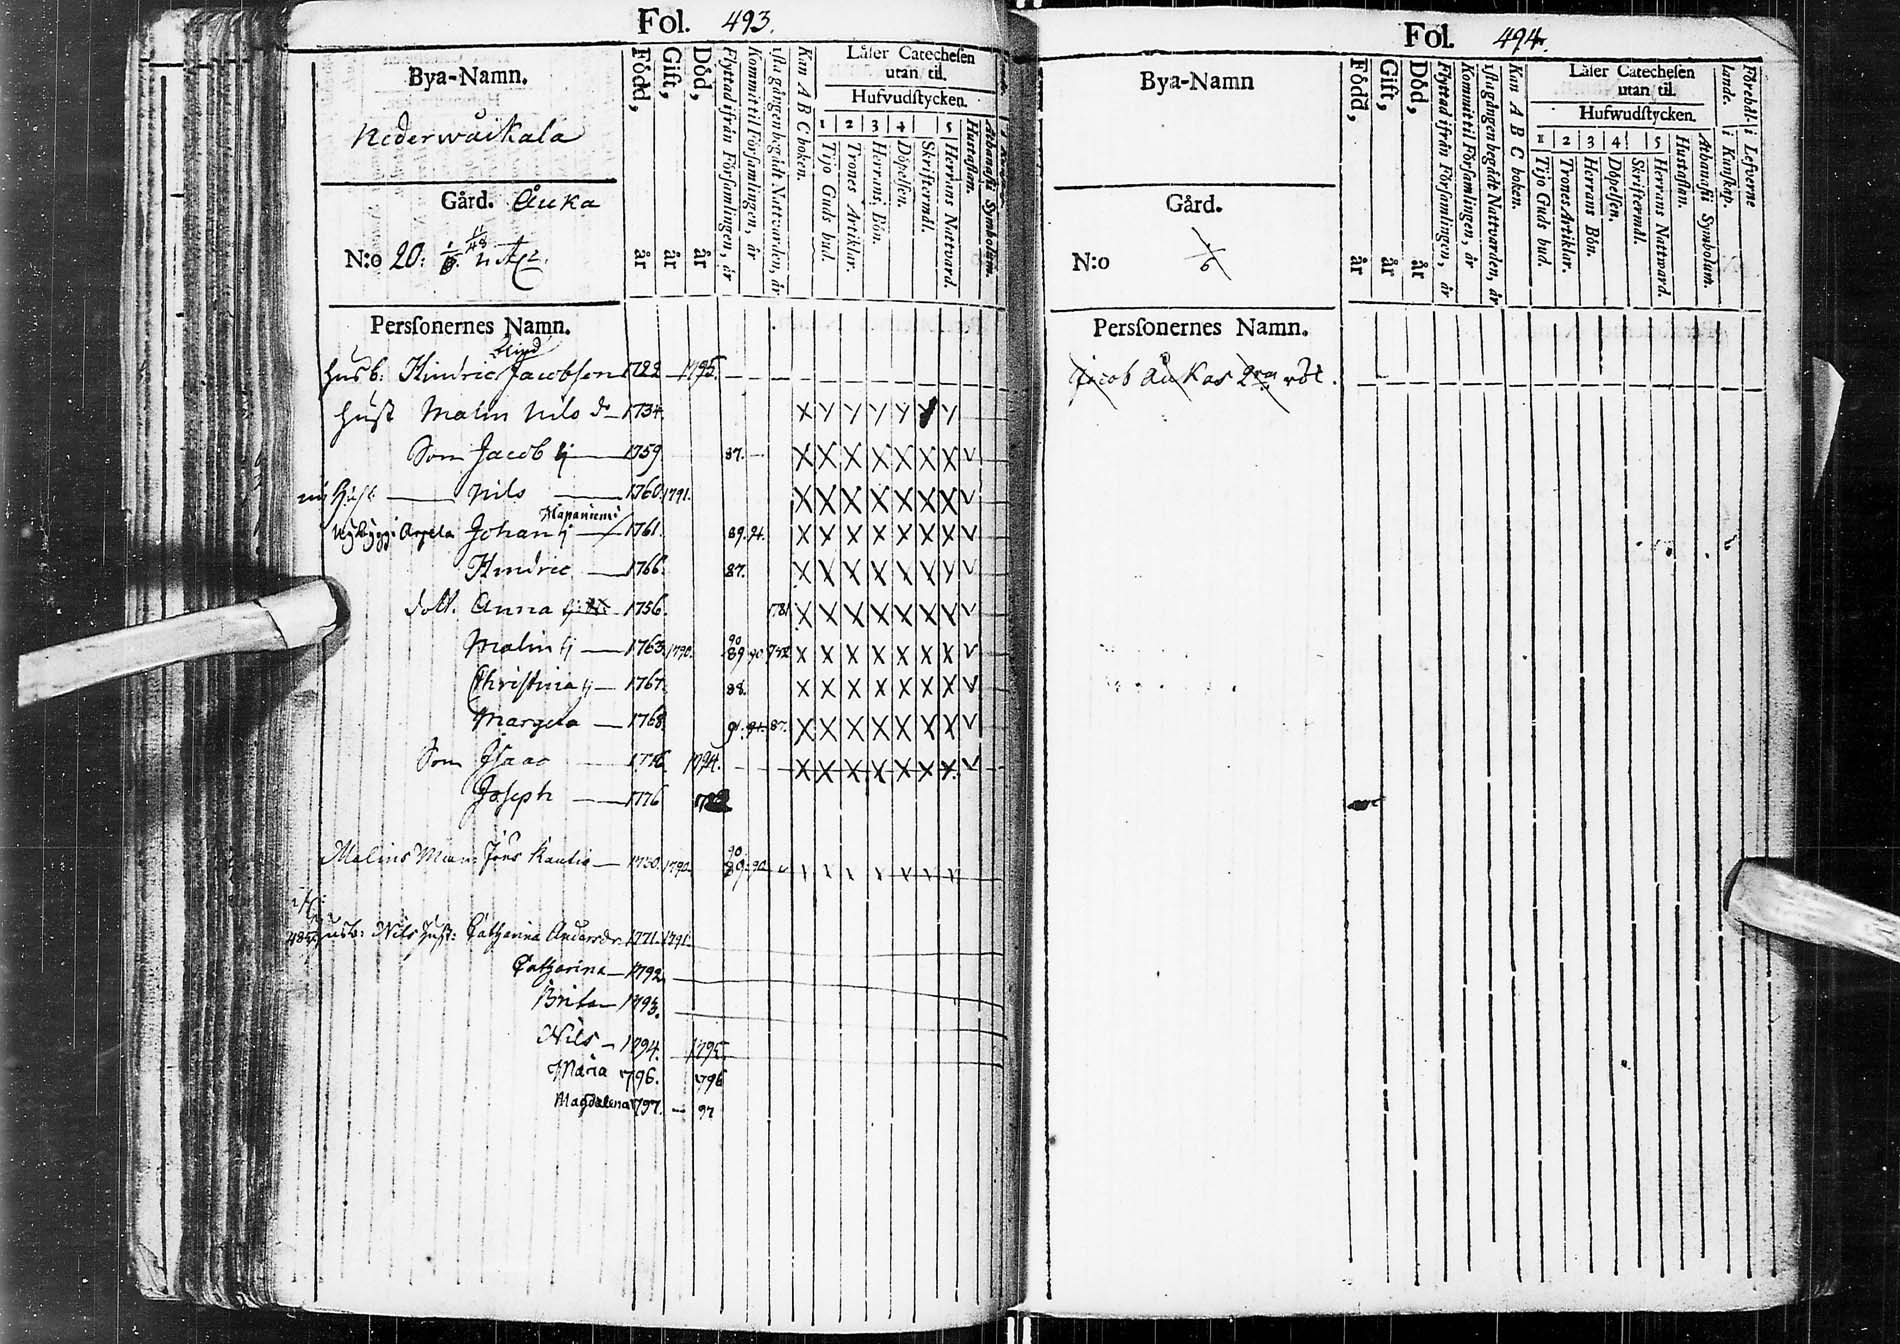 Fol. 493.
Bya-Namn.
Nederwåikala
Gård. Auka
N:o 20.
Född, år
Gift, år
Död, år
Flyttad ifrån Församlingen, år
Kommit til Församlingen, år
1sta gången begådt Nattvarden, år
Kan A B C boken.
Läser Catechesen
utan til.
Hufvudstycken.
1 2 3 4 5
Tijo Guds bud.
Trones Artiklar.
Herrans Bön.
Döpelsen.
Skriftermål.
Herrans Nattvard.
Hustaflan.
Athanasii Symbolum.
Perssonernes Namn.
Husb. Hindric Jacobsson 1722 1795.
Hust Malin Nils dr 1734.
Son Jacob 1759 87.
Nils 1760. 1791.
Mapaniemi
Johan 1761. 89. 94.
Hindric 1766. 87.
dott. Anna 1756. 1781
Malin 1763. 1790. 90 89 90
Christina 1767. 88.
Margeta 1768. 91. 87.
Son Isaac 1794.
Joseph 1776
Malins Man 1750. 1790. 90. 89. 90
Husb: Nils Hust: Catharina Andersdr. 1771. 1791.
Catharina 1792.
Brita 1793.
Nils 1794. 1795.
Maria 1796. 1796
Magdalena 1797. 97
Fol. 494.
Bya-Namn
Gård.
N:o 1/6
Född, år
Gift, år
Död, år
Flyttad ifrån Församlingen, år
Kommit til Församlingen, år
1sta gången begådt Nattvarden, år
Kan A B C boken.
Läser Catechesen
utan til.
Hufwudstycken.
1 2 3 4 5
Tijo Guds bud.
Trones Artiklar.
Herrans Bön.
Döpelsen.
Skriftermål.
Herrans Nattward.
Hustaflan.
Athanasii Symbolum.
Förehållande.
i Kunskap.
i Lefverne
Perssonernes Namn.
Jacob Aukas 2ra